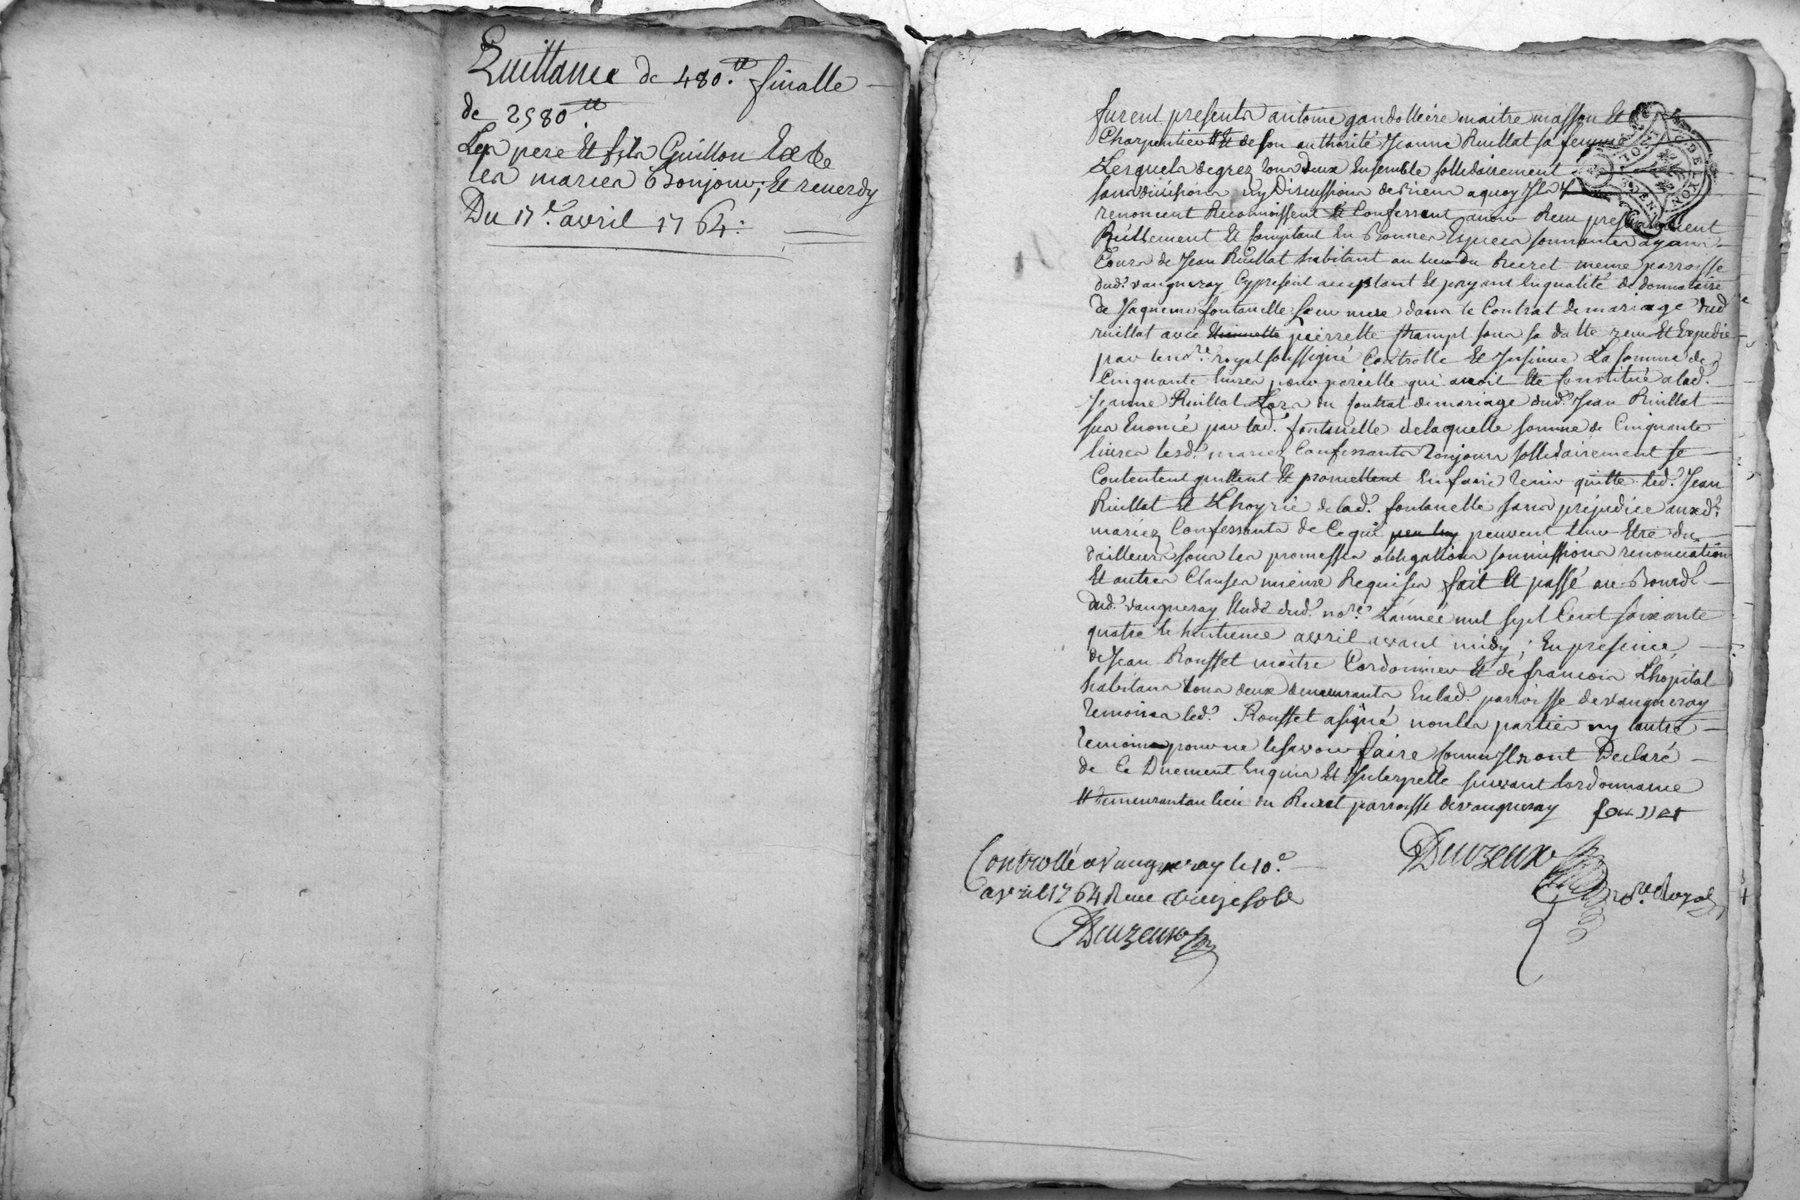 Quittance de 480.tt finalle
de 2580tt
Les pere et fils Guillon
les mariés Bonjour, et reverdy
Du 17e avril 1764:
furent presents antoine gandolliére maitre masson et
Charpentier tt et de son authorité Jeanne Ruillat sa femme
Lesquels de grez tous deux Ensemble sollidairement
sans division ny Discussion de biens a quoy Ils
renoncent Reconnoissent et Confessent avoir Receu presentement
Réellement et Comptant En Bonnes Especes sonnantes ayant
Cours de Jean Ruillat habitant au lieu du Recret meme parroisse
dud.t vaugneray Cy present acceptant et payant En qualité de donnataire
de Jaqueme fontanelle sa mere dans le Contrat de mariage dud
ruillat avec pierrette thampt sous sa datte receu Et Expedié
par le no.re royal soussigné Controllé Et Insinué La somme de
Cinquante livres pour pareille qui avoit Eté Constitué a lad.
Jeanne Ruillat Lors du Contrat de mariage dud. Jean Ruillat
sus Enoncé par lad. fontanelle de laquelle somme de Cinquante
livres lesd. mariez Confessants toujours sollidairement se
Contentent quittent Et promettent En faire tenir quitte led. Jean
Ruillat Et Lhoyrie de lad. fontanelle sans préjudice auxd.
mariez Confessants de Ce qui peuvent leur Etre du
d'ailleurs sous les promesses obligations soumissions renonciations
Et autres Clauses mieux Requises fait Et passé au Bourd
dud. vaugneray Etude dud. no.re L'année mil sept Cent soixante
quatre le huitieme avril avant midy; En presence
de Jean Rousset maitre Cordonnier Et de francois Lhopital
habitans tous deux demeurants En lad. parroisse de vaugneray
temoins led. Rousset a signé non les parties ny l'autre
temoin pour ne le savoir faire comme Ils ont Declaré
de Ce Duement Enquis Et Interpellé suivant l'ordonnance
tt demeurant au lieu du Recret parroisse de vaugneray rousset
Deuzeux
no.re Royal
Controllé a Vaugneray le 10e
avril 1764 Receu
Deuzeux